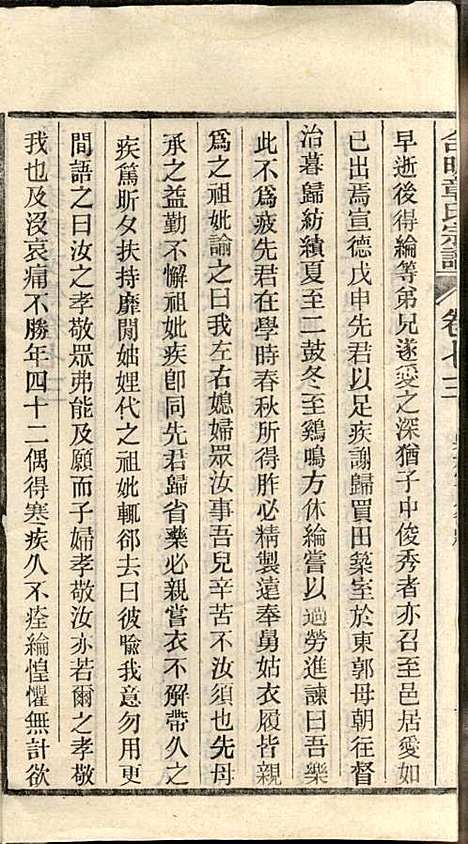 章氏宗譜 卷七
早逝後得綸等弟兄遂愛之深猶子中俊秀者亦召至邑居愛如
已出焉宣德戊申先君以足疾謝歸買田築室於東郭母朝往督
治暮歸紡績夏至二鼓冬至鷄鳴方休綸嘗以過勞進諫曰吾樂
此不為疲先君在學時春秋所得胙必精製遠奉舅姑衣履皆親
為之祖妣諭之曰我左右媳婦眾汝事吾兒辛苦不汝須也先母
承之益勤不懈祖妣疾卽同先君歸省藥必親嘗衣不解帶久之
疾篤昕夕扶持靡閒娣娌代之祖妣輒郤去曰彼喻我意勿用更
間語之曰汝之孝敬眾弗能及願而子婦孝敬汝亦若爾之孝敬
我也及沒哀痛不勝年四十二偶得寒疾久不痊綸惶懼無計欲